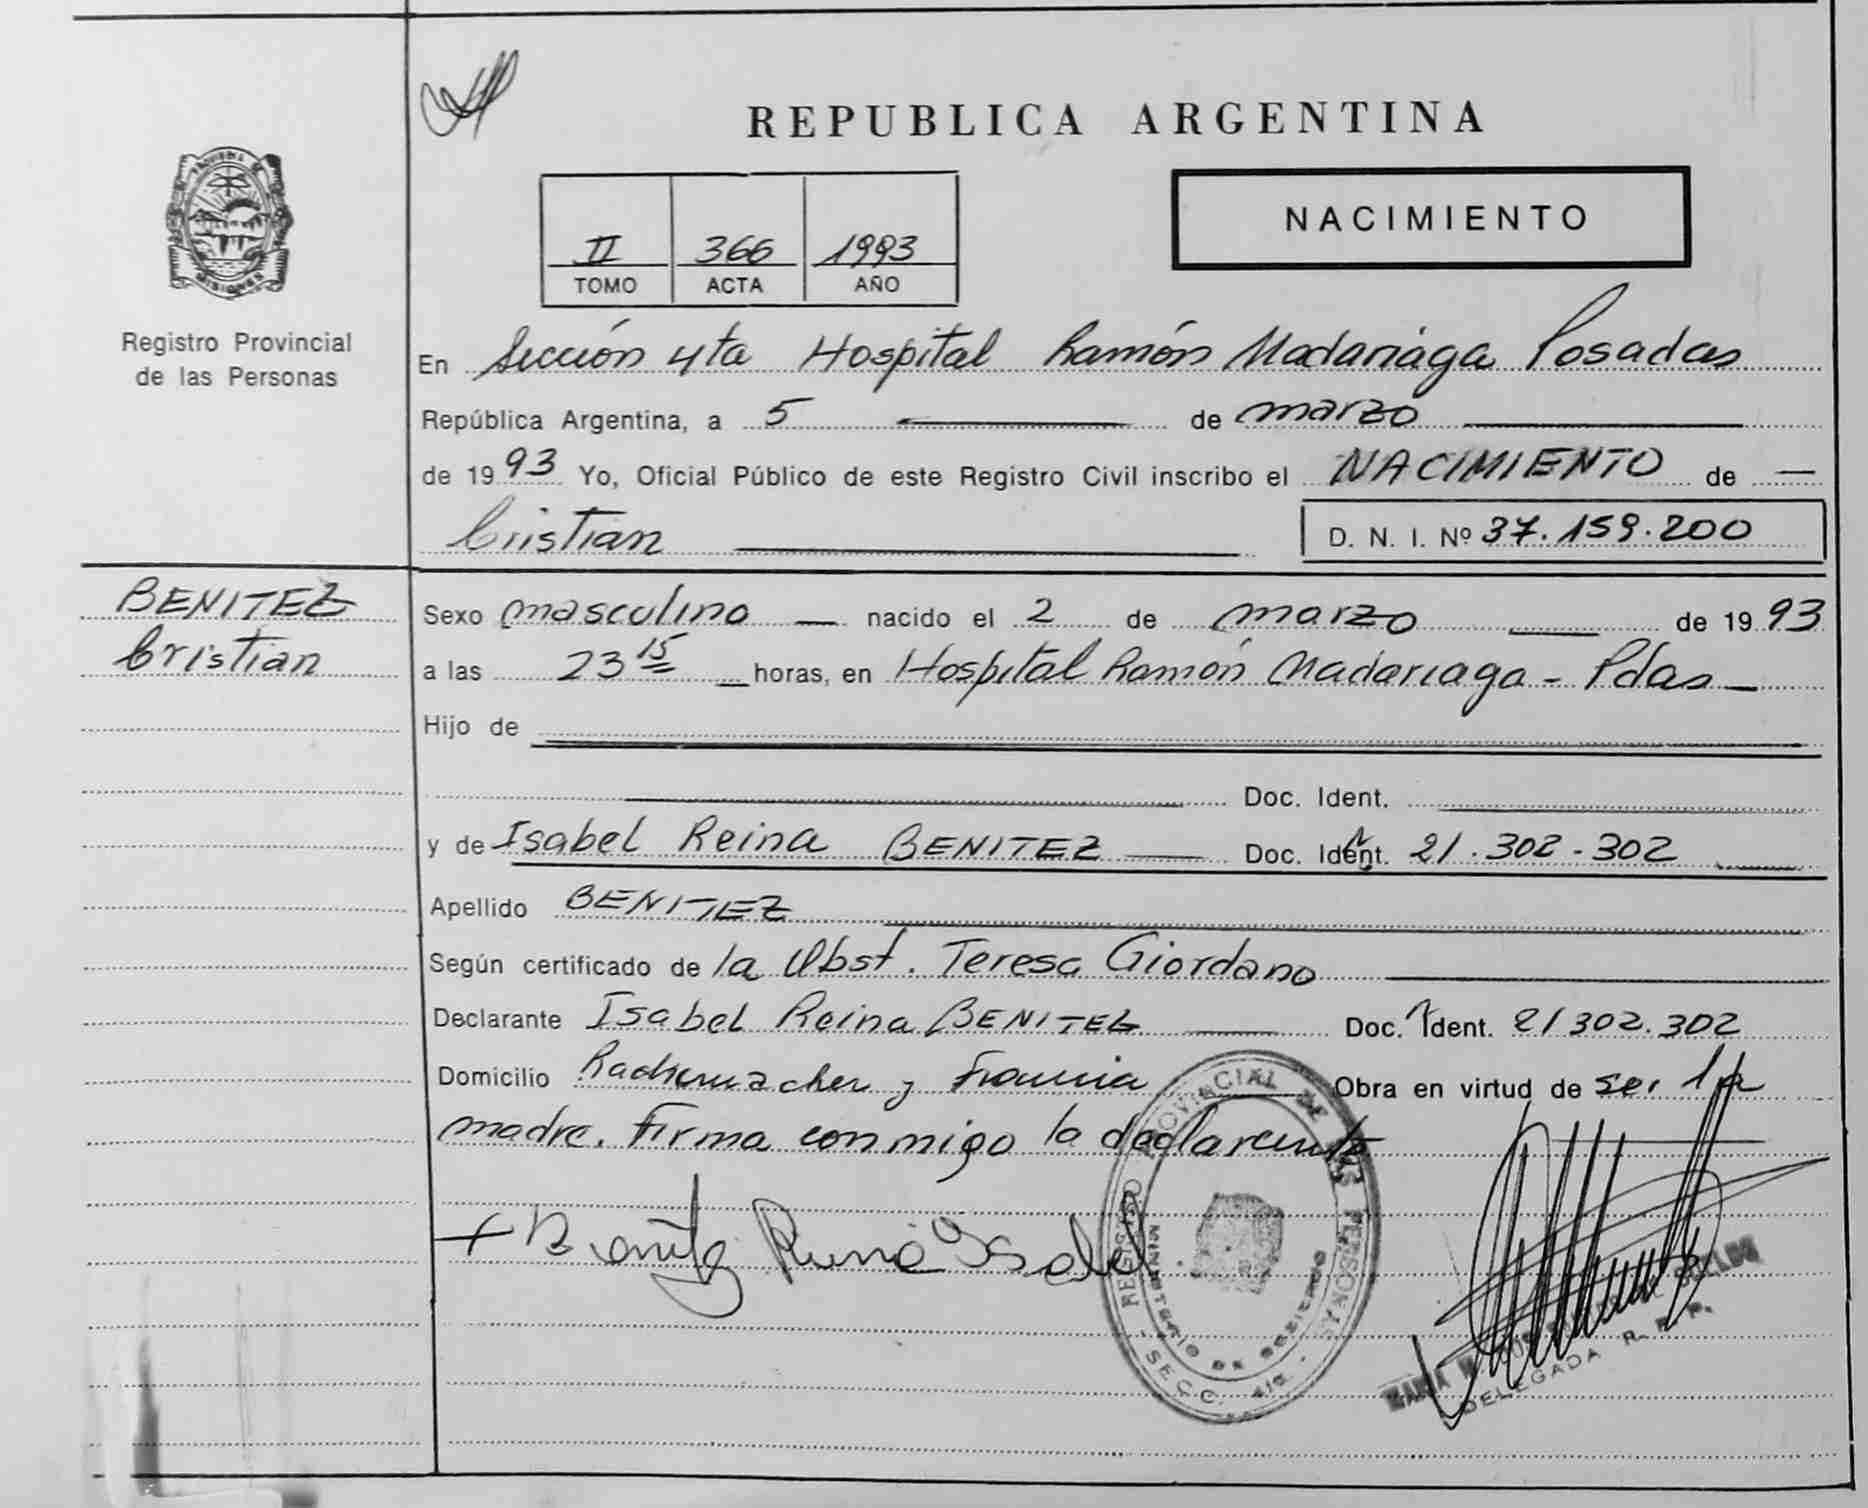 REPUBLICA ARGENTINA
NACIMIENTO
II 366 1993
TOMO ACTA AÑO
Registro Provincial
de las Personas
En Sección 4ta Hospital Ramón Madariaga Posadas
República Argentina, a 5 de marzo
de 1993 Yo, Oficial Público de este Registro Civil inscribo el NACIMIENTO de
Cristian D. N. I. Nº 37.159.200
BENITEZ
Cristian
Sexo masculino nacido el 2 de marzo de 1993
a las 23 15 horas, en Hospital Ramón Madariaga - Pdas
Hijo de
Doc. Ident.
y de Isabel Reina BENITEZ Doc. Ident. 21.302-302
Apellido BENITEZ
Según certificado de la Obst. Teresa Giordano
Declarante Isabel Reina BENITEZ Doc. Ident. 21302.302
Domicilio y Francia Obra en virtud de ser la
madre. Firma conmigo la declarante
+ Benitez Reina Isabel
REGISTRO PROVINCIAL DE LAS PERSONAS
MINISTERIO DE GOBIERNO
- SECC. 4ta. -
MARIA
DELEGADA R. P. P.